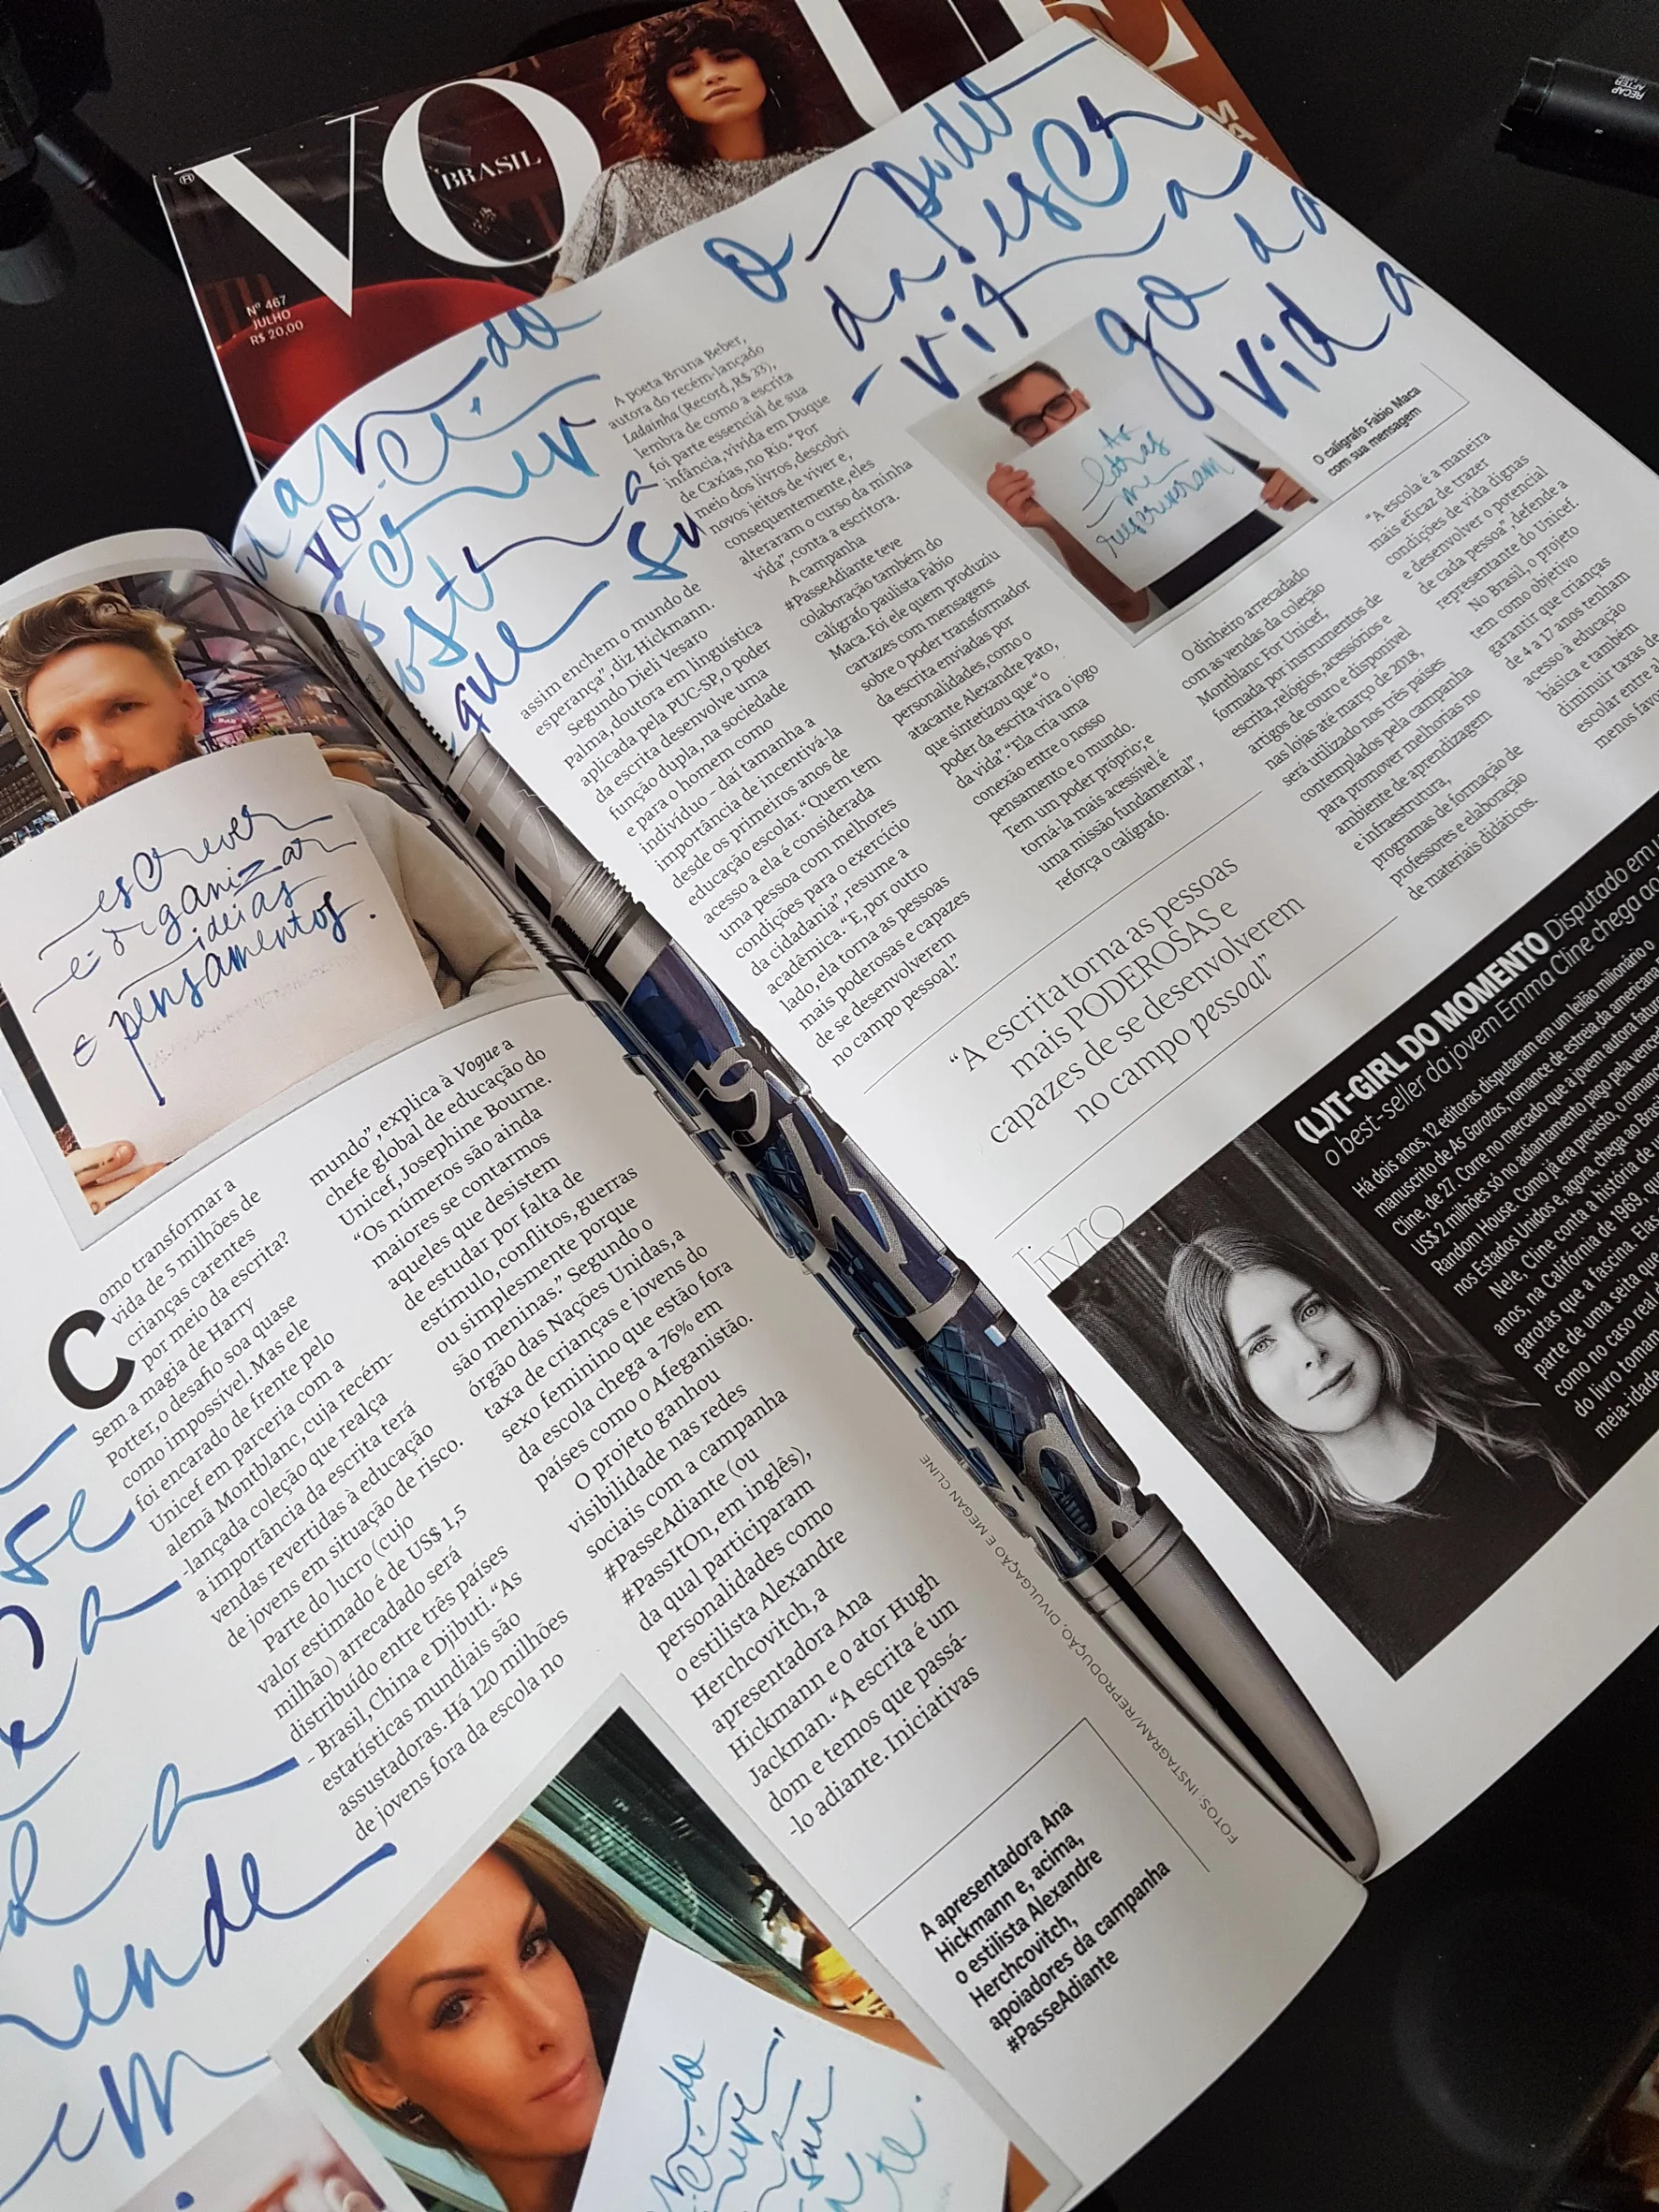 VO UE
BRASIL
Nº 467
JULHO
R$ 20,00
RECAP
AFTER
o poder
da escri
-vita a
go da
vida
quando
você
escreve
mostra
que
su
escrever
é organizar
ideias
e pensamentos.
Como transformar a
vida de 5 milhões de
crianças carentes
por meio da escrita?
Sem a magia de Harry
Potter, o desafio soa quase
como impossível. Mas ele
foi encarado de frente pelo
Unicef em parceria com a
alemã Montblanc, cuja recém-
-lançada coleção que realça
a importância da escrita terá
vendas revertidas à educação
de jovens em situação de risco.
Parte do lucro (cujo
valor estimado é de US$ 1,5
milhão) arrecadado será
distribuído entre três países
- Brasil, China e Djibuti. “As
estatísticas mundiais são
assustadoras. Há 120 milhões
de jovens fora da escola no
mundo”, explica à Vogue a
chefe global de educação do
Unicef, Josephine Bourne.
“Os números são ainda
maiores se contarmos
aqueles que desistem
de estudar por falta de
estímulo, conflitos, guerras
ou simplesmente porque
são meninas.” Segundo o
órgão das Nações Unidas, a
taxa de crianças e jovens do
sexo feminino que estão fora
da escola chega a 76% em
países como o Afeganistão.
O projeto ganhou
visibilidade nas redes
sociais com a campanha
#PasseAdiante (ou
#PassItOn, em inglês),
da qual participaram
personalidades como
o estilista Alexandre
Herchcovitch, a
apresentadora Ana
Hickmann e o ator Hugh
Jackman. “A escrita é um
dom e temos que passá-
-lo adiante. Iniciativas
A apresentadora Ana
Hickmann e, acima,
o estilista Alexandre
Herchcovitch,
apoiadores da campanha
#PasseAdiante
FOTOS: INSTAGRAM/REPRODUÇÃO, DIVULGAÇÃO E MEGAN CLINE
assim enchem o mundo de
esperança”, diz Hickmann.
Segundo Dieli Vesaro
Palma, doutora em linguística
aplicada pela PUC-SP, o poder
da escrita desenvolve uma
função dupla, na sociedade
e para o homem como
indivíduo – daí tamanha a
importância de incentivá-la
desde os primeiros anos de
educação escolar. “Quem tem
acesso a ela é considerada
uma pessoa com melhores
condições para o exercício
da cidadania”, resume a
acadêmica. “E, por outro
lado, ela torna as pessoas
mais poderosas e capazes
de se desenvolverem
no campo pessoal.”
A poeta Bruna Beber,
autora do recém-lançado
Ladainha (Record, R$ 33),
lembra de como a escrita
foi parte essencial de sua
infância, vivida em Duque
de Caxias, no Rio. “Por
meio dos livros, descobri
novos jeitos de viver e,
consequentemente, eles
alteraram o curso da minha
vida”, conta a escritora.
A campanha
#PasseAdiante teve
colaboração também do
calígrafo paulista Fabio
Maca. Foi ele quem produziu
cartazes com mensagens
sobre o poder transformador
da escrita enviadas por
personalidades, como o
atacante Alexandre Pato,
que sintetizou que “o
poder da escrita vira o jogo
da vida”. “Ela cria uma
conexão entre o nosso
pensamento e o mundo.
Tem um poder próprio, e
torná-la mais acessível é
uma missão fundamental”,
reforça o calígrafo.
As
letras
me
reescreveram
O calígrafo Fabio Maca
com sua mensagem
O dinheiro arrecadado
com as vendas da coleção
Montblanc For Unicef,
formada por instrumentos de
escrita, relógios, acessórios e
artigos de couro e disponível
nas lojas até março de 2018,
será utilizado nos três países
contemplados pela campanha
para promover melhorias no
ambiente de aprendizagem
e infraestrutura,
programas de formação de
professores e elaboração
de materiais didáticos.
“A escola é a maneira
mais eficaz de trazer
condições de vida dignas
e desenvolver o potencial
de cada pessoa”, defende a
representante do Unicef.
No Brasil, o projeto
tem como objetivo
garantir que crianças
de 4 a 17 anos tenham
acesso à educação
básica e também
diminuir taxas de
escolar entre
menos
“A escrita torna as pessoas
mais PODEROSAS e
capazes de se desenvolverem
no campo pessoal”
livro
(L)IT-GIRL DO MOMENTO Disputado em
O best-seller da jovem Emma Cline chega ao
Há dois anos, 12 editoras disputaram em um leilão milionário o
manuscrito de As Garotas, romance de estreia da americana
Cline, de 27. Corre no mercado que a jovem autora
US$ 2 milhões só no adiantamento pago pela
Random House. Como já era previsto, o
nos Estados Unidos e, agora, chega ao
Nele, Cline conta a história de
anos, na Califórnia de 1969,
garotas que a fascina.
parte de uma seita que
como no caso real
do livro tomam
meia-idade